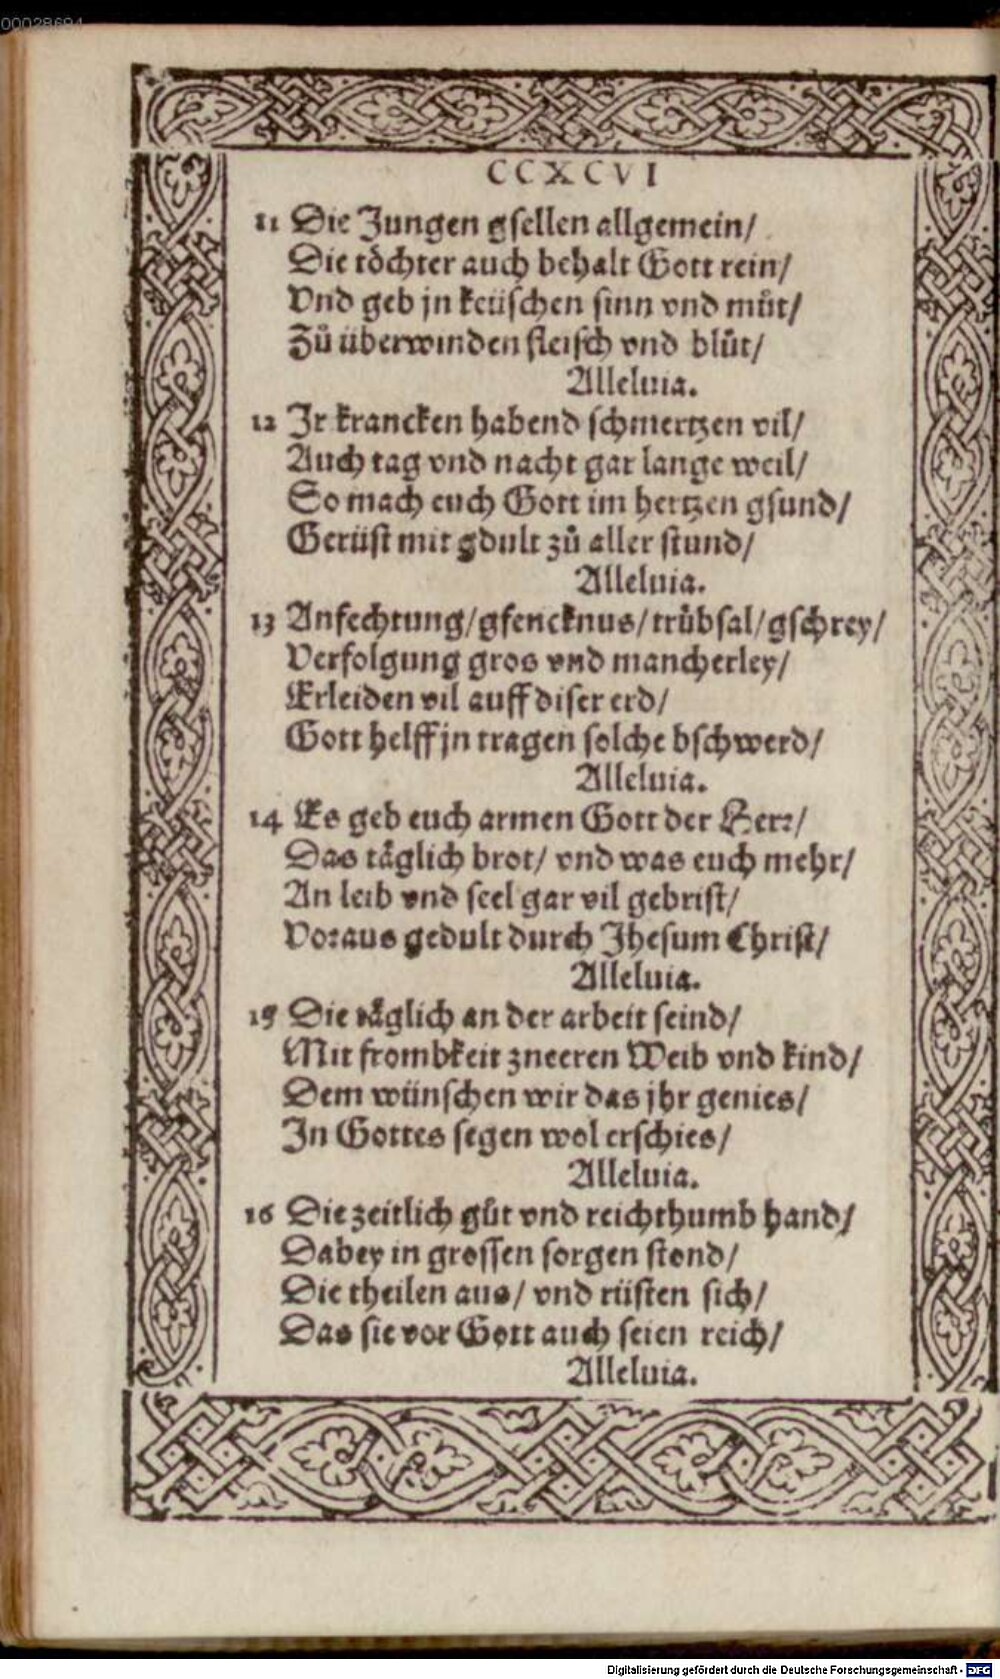 00028694
CCXCVI
11 Die Jungen gsellen allgemein/
Die töchter auch behalt Gott rein/
Vnd geb jn keüschen sinn vnd můt/
Zů überwinden fleisch vnd blůt/
Alleluia.
12 Ir krancken habend schmertzen vil/
Auch tag vnd nacht gar lange weil/
So mach euch Gott im hertzen gsund/
Gerüst mit gdult zů aller stund/
Alleluia.
13 Anfechtung/gfencknus/trübsal/gschrey/
Verfolgung gros vnd mancherley/
Erleiden vil auff diser erd/
Gott helff jn tragen solche bschwerd/
Alleluia.
14 Es geb euch armen Gott der Herr/
Das täglich brot/ vnd was euch mehr/
An leib vnd seel gar vil gebrist/
Voraus gedult durch Jhesum Christ/
Alleluia.
15 Die täglich an der arbeit seind/
Mit frombkeit zneeren Weib vnd kind/
Dem wünschen wir das jhr genies/
In Gottes segen wol erschies/
Alleluia.
16 Die zeitlich gůt vnd reichthumb hand/
Dabey in grossen sorgen stond/
Die theilen aus/ vnd rüsten sich/
Das sie vor Gott auch seien reich/
Alleluia.
Digitalisierung gefördert durch die Deutsche Forschungsgemeinschaft - DFG